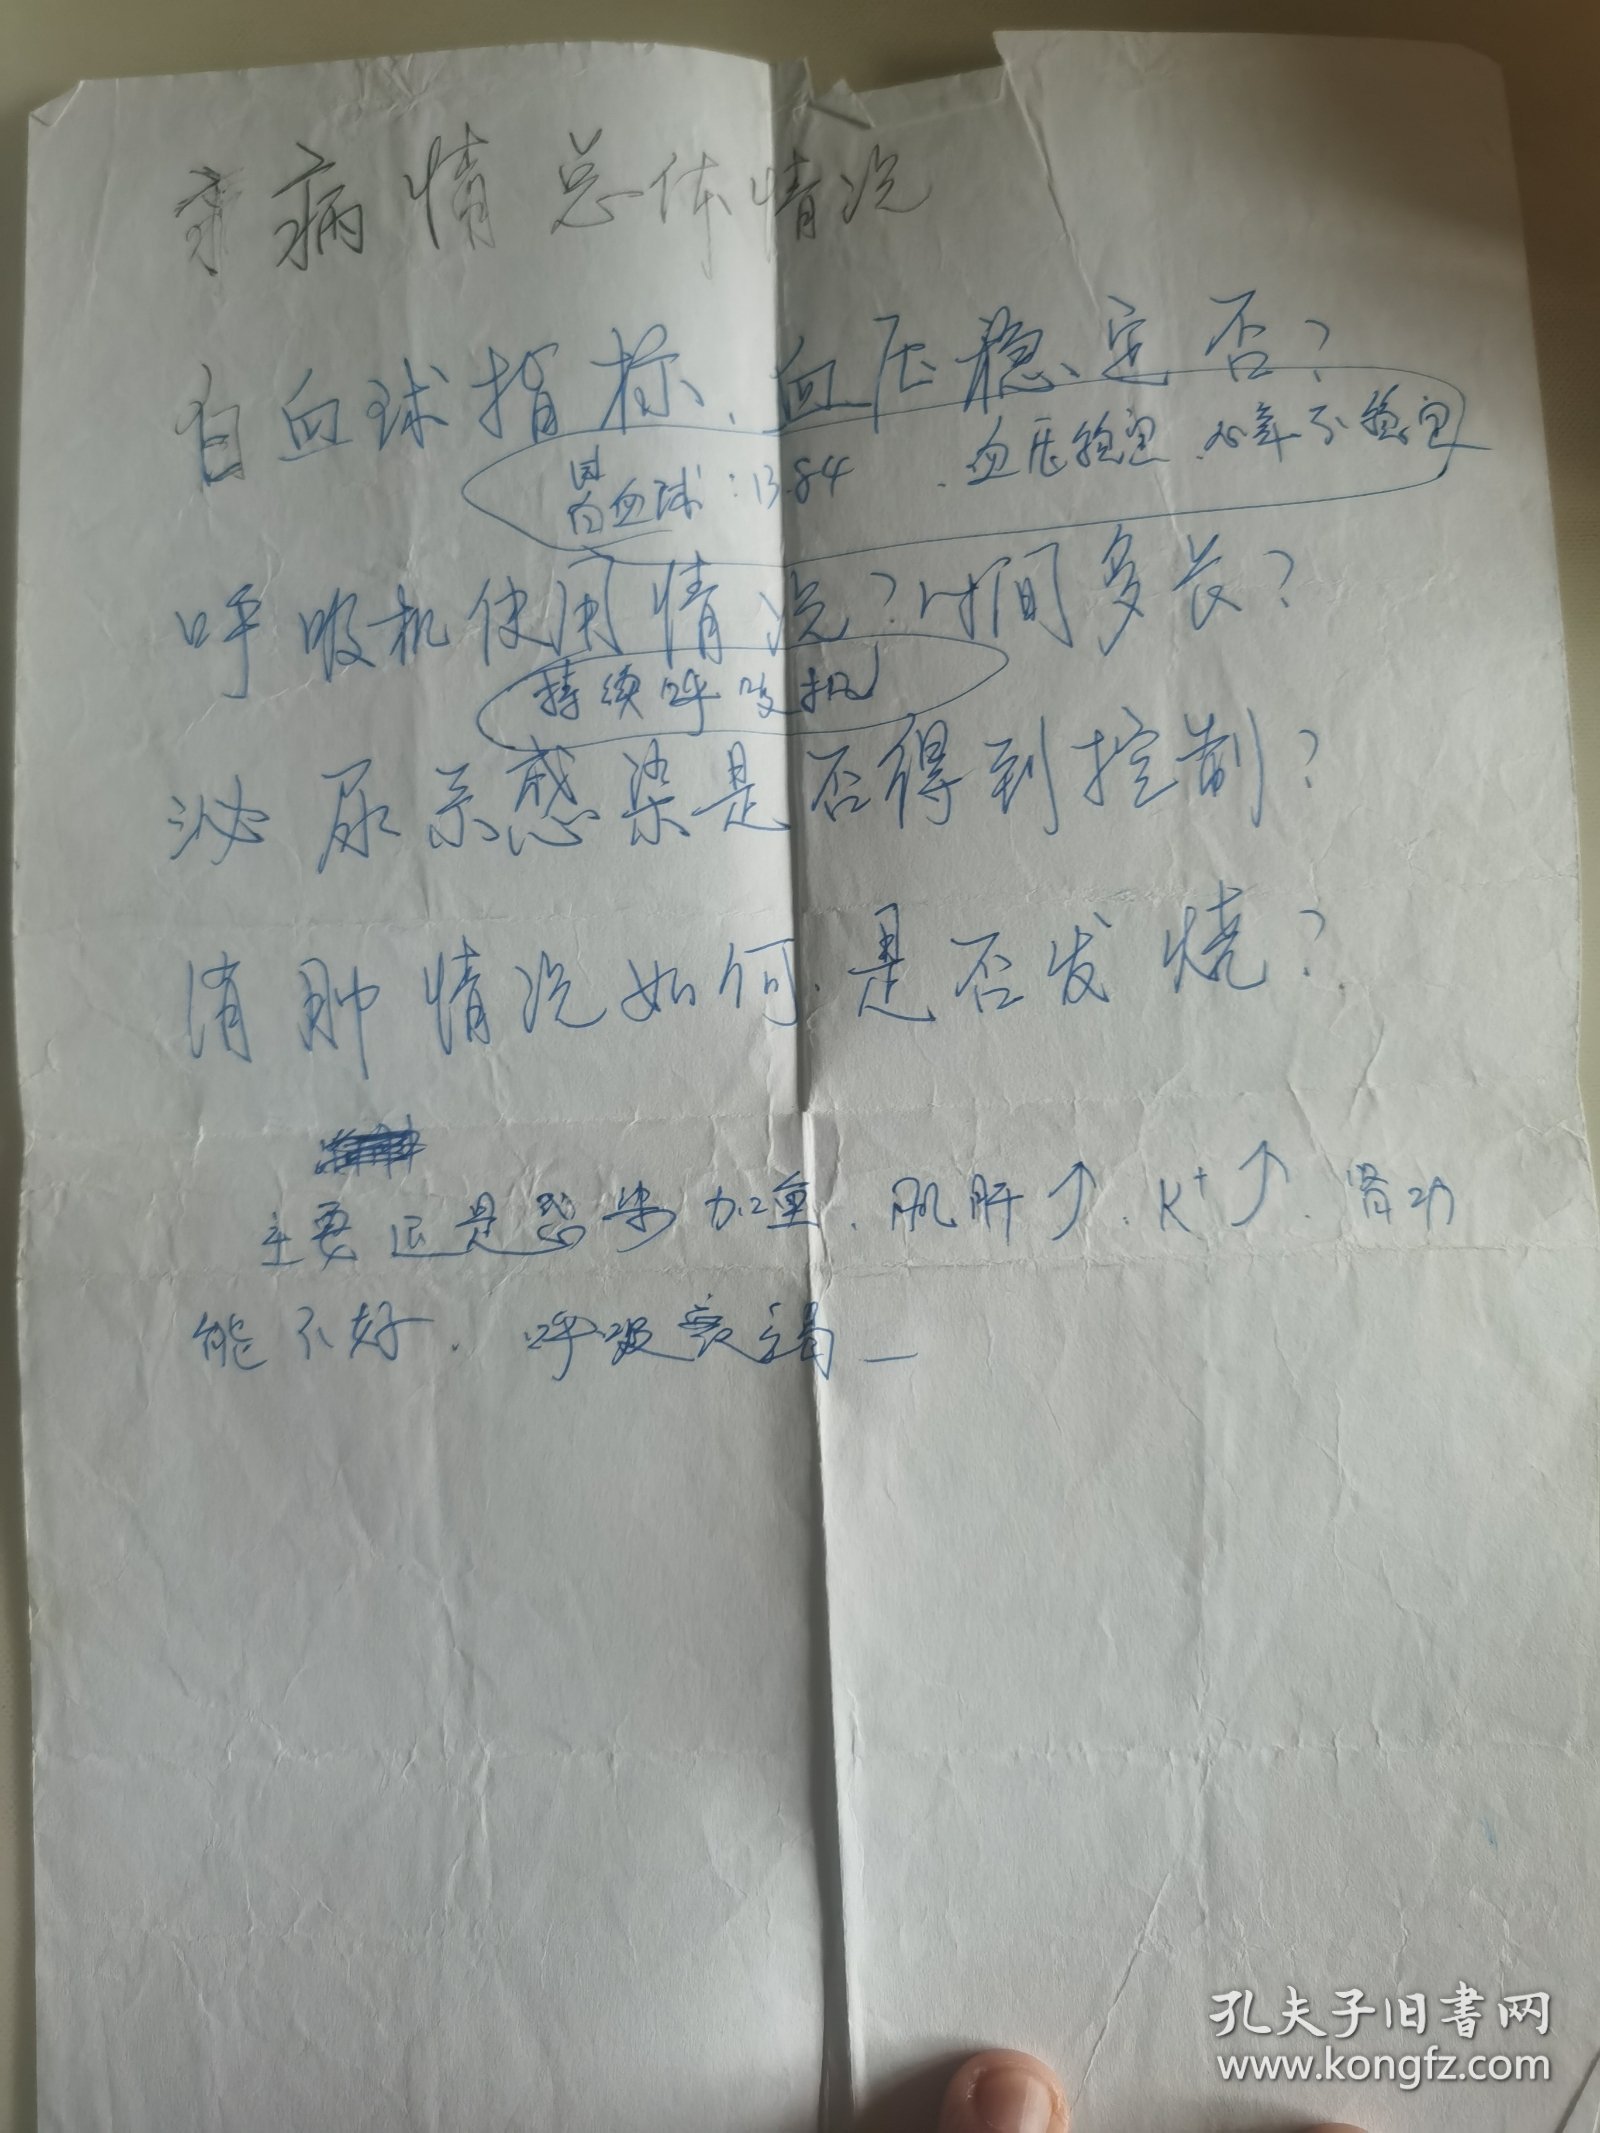 病情总体情况
白血球指标、血压稳定否?
白血球:13.84 . 血压稳定.心率不稳定
呼吸机使用情况?时间多长?
持续呼吸机
泌尿系感染是否得到控制?
消肿情况如何.是否发烧?
主要还是感染加重.肌肝↑.K⁺↑.肾功
能不好. 呼吸衰竭
孔夫子旧书网
www.kongfz.com